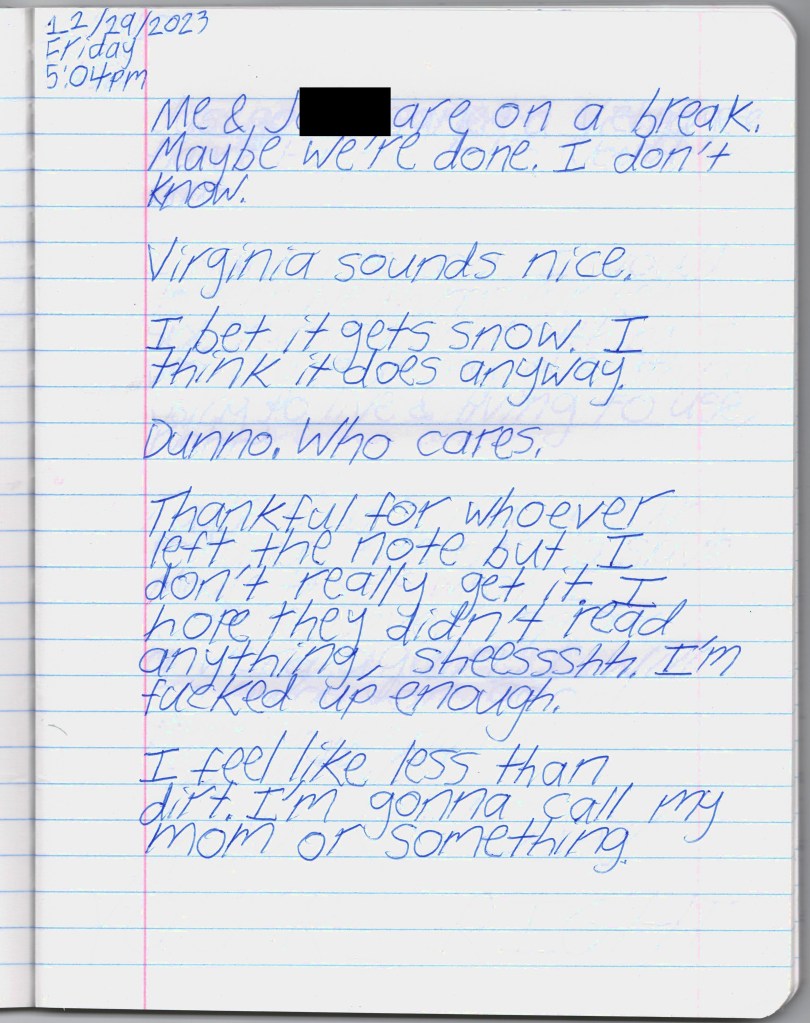 12/29/2023
Friday
5:04pm
Me & J are on a break.
Maybe we're done. I don't
know.
Virginia sounds nice.
I bet it gets snow. I
think it does anyway.
Dunno. Who cares.
Thankful for whoever
left the note but I
don't really get it. I
hope they didn't read
anything, sheessshh. I'm
fucked up enough.
I feel like less than
dirt. I'm gonna call my
mom or something.